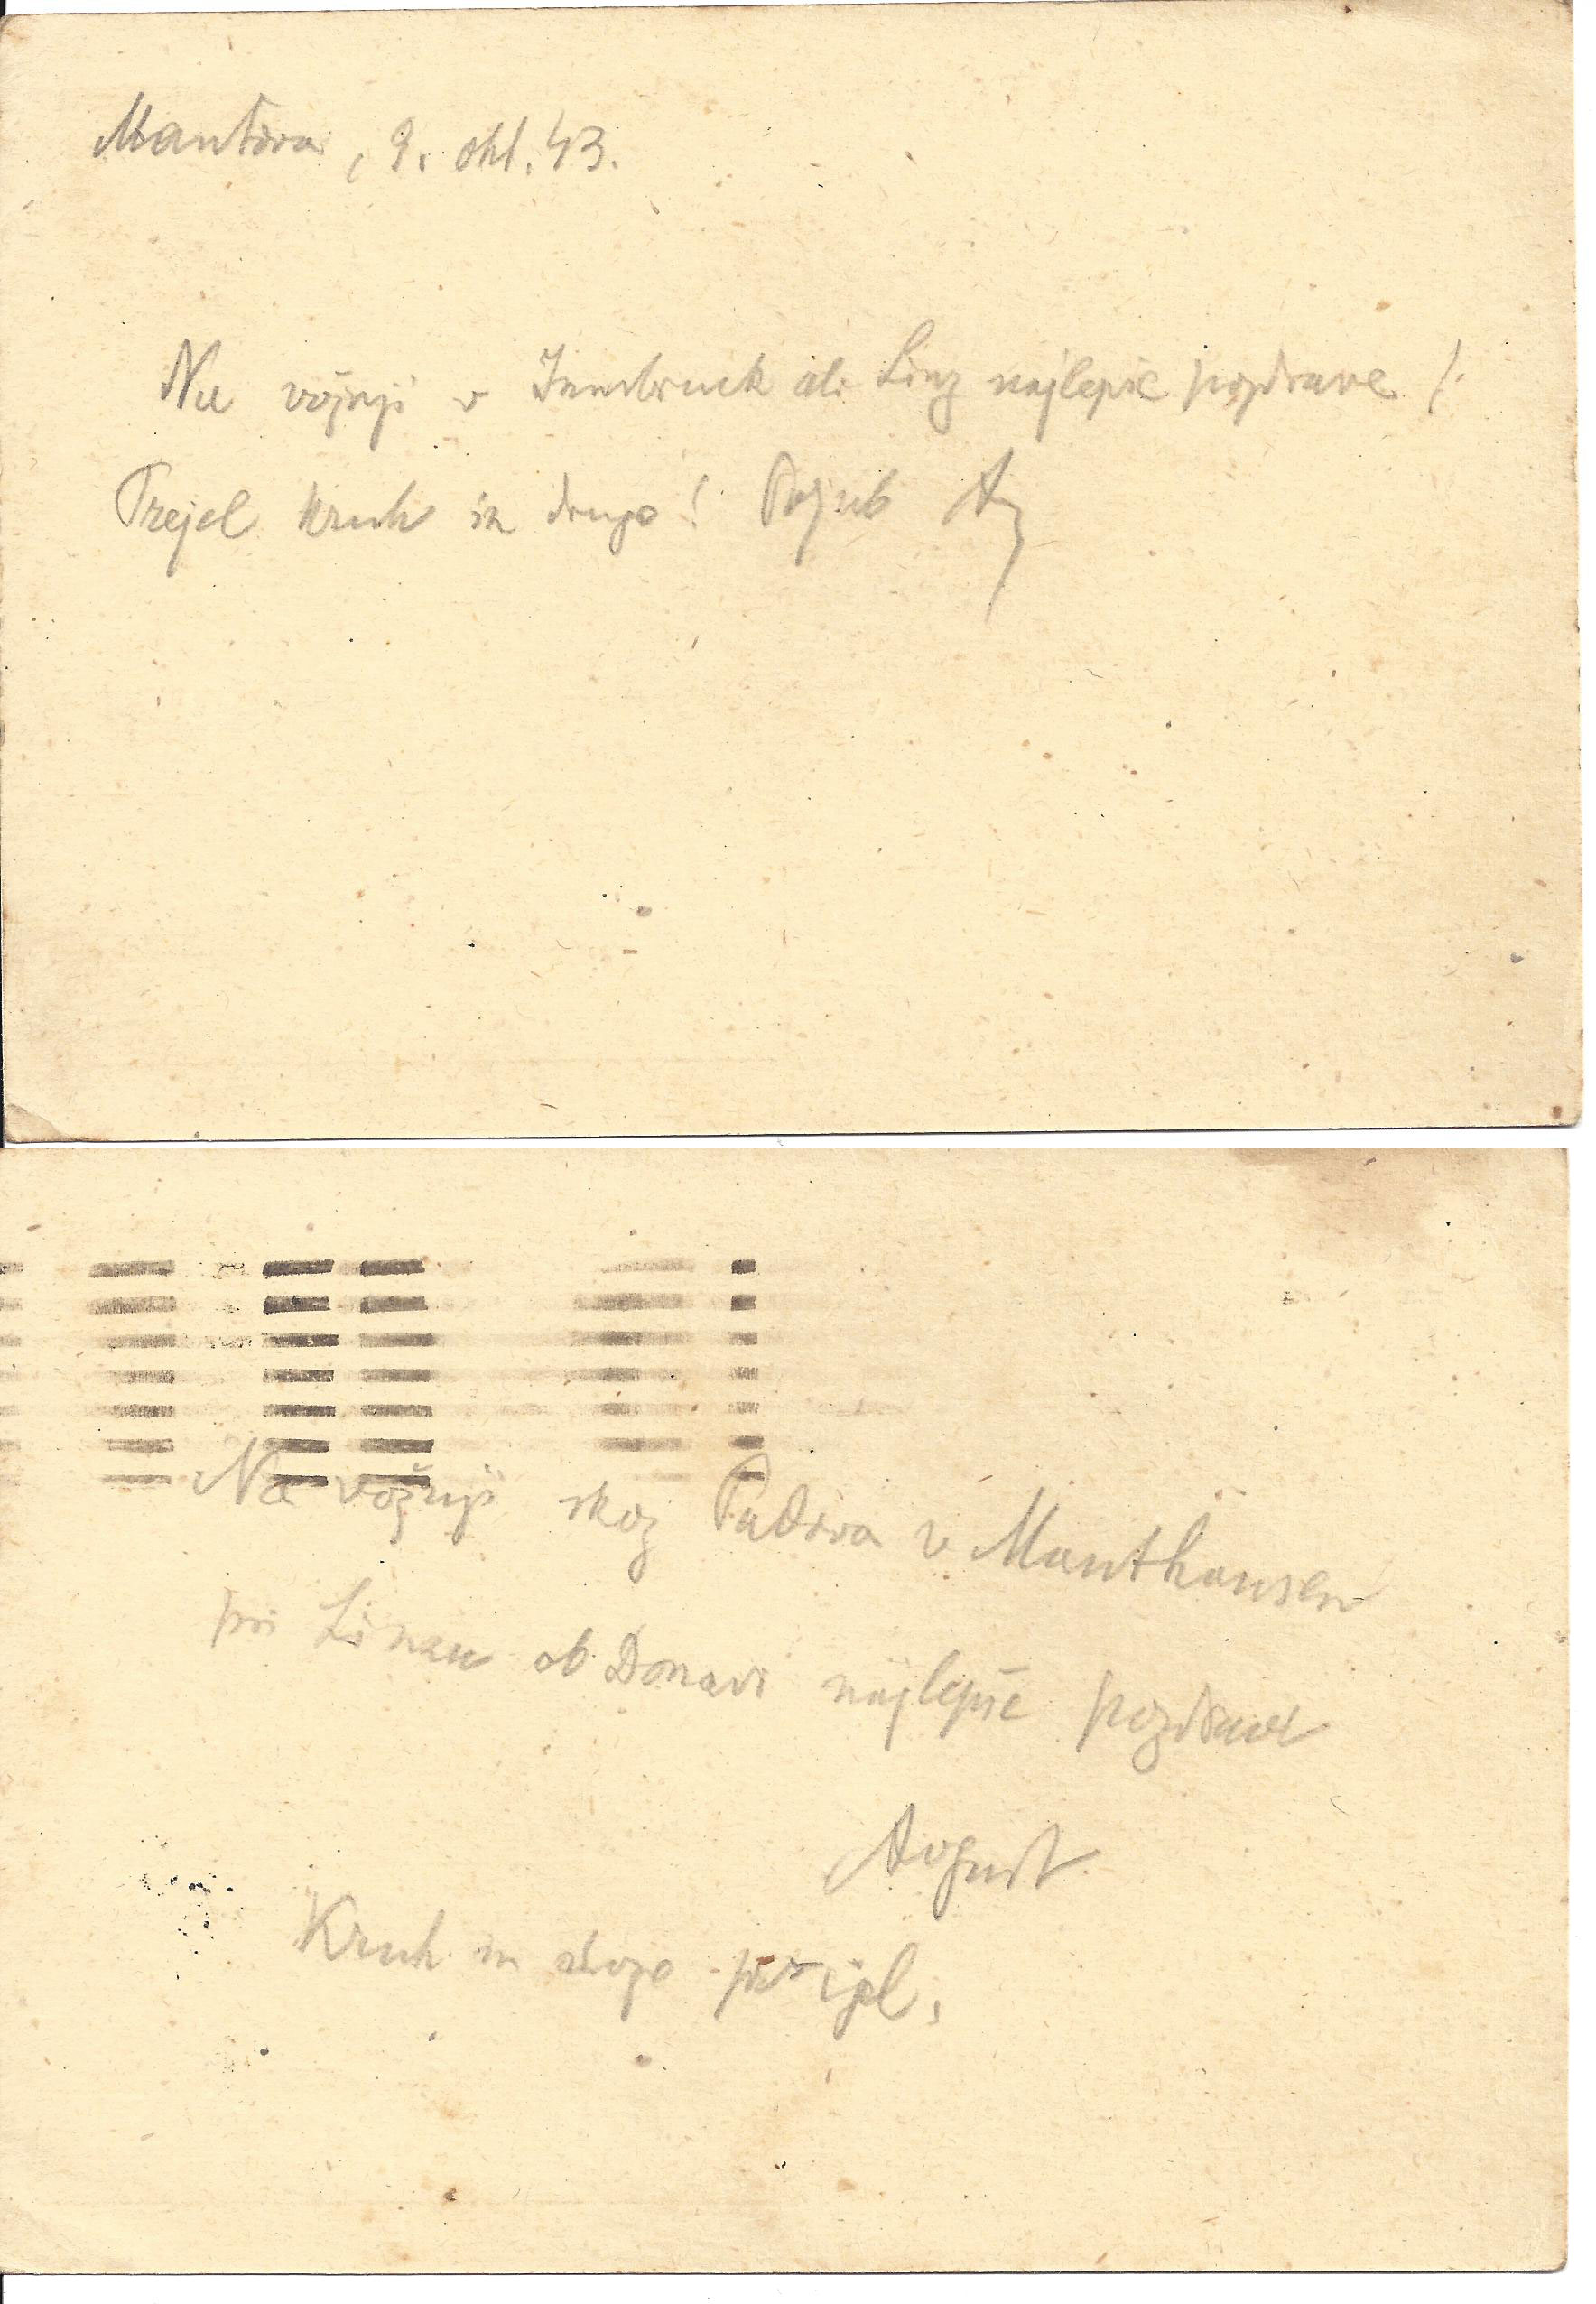 Mantova, 9. okt. 43.
Na vožnji v Innsbruck ali Linz najlepše pozdrave!
Prejel kruh in drugo! Poljub
Na vožnji skoz Padova v Mauthausen
pri Linzu ob Donavi najlepše pozdrave
Avgust
Kruh in drugo